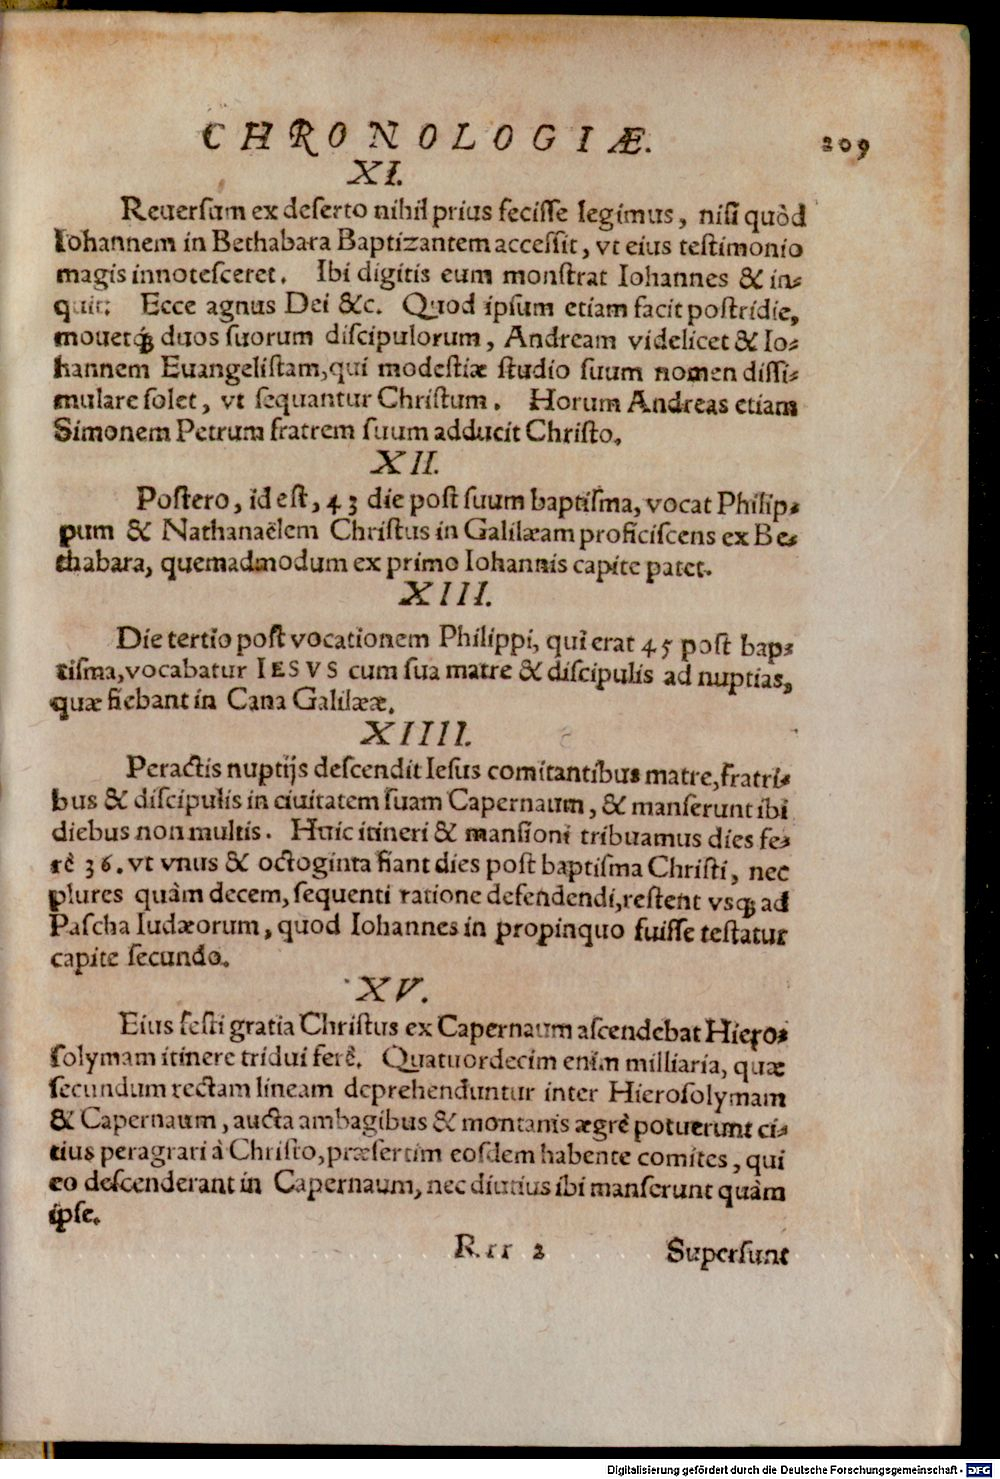 CHRONOLOGIÆ. 209
XI.
Reuersum ex deserto nihil prius fecisse legimus, nisi quòd
Iohannem in Bethabara Baptizantem accessit, vt eius testimonio
magis innotesceret. Ibi digitis eum monstrat Iohannes & in-
quit: Ecce agnus Dei &c. Quod ipsum etiam facit postridie,
mouetq́; duos suorum discipulorum, Andream videlicet & Io-
hannem Euangelistam, qui modestiæ studio suum nomen dissi-
mulare solet, vt sequantur Christum. Horum Andreas etiam
Simonem Petrum fratrem suum adducit Christo.
XII.
Postero, id est, 43 die post suum baptisma, vocat Philip-
pum & Nathanaëlem Christus in Galilæam proficiscens ex Be-
thabara, quemadmodum ex primo Iohannis capite patet.
XIII.
Die tertio post vocationem Philippi, qui erat 45 post bap-
tisma, vocabatur IESVS cum sua matre & discipulis ad nuptias,
quæ fiebant in Cana Galilææ.
XIIII.
Peractis nuptijs descendit Iesus comitantibus matre, fratri-
bus & discipulis in ciuitatem suam Capernaum, & manserunt ibi
diebus non multis. Huic itineri & mansioni tribuamus dies fe-
rè 36. vt vnus & octoginta fiant dies post baptisma Christi, nec
plures quàm decem, sequenti ratione defendendi, restent vsq; ad
Pascha Iudæorum, quod Iohannes in propinquo fuisse testatur
capite secundo.
XV.
Eius festi gratia Christus ex Capernaum ascendebat Hiero-
solymam itinere tridui ferè. Quatuordecim enim milliaria, quæ
secundum rectam lineam deprehenduntur inter Hierosolymam
& Capernaum, aucta ambagibus & montanis ægrè potuerunt ci-
tius peragrari à Christo, præsertim eosdem habente comites, qui
eo descenderant in Capernaum, nec diutius ibi manserunt quàm
ipse.
Rrr 2 Supersunt
Digitalisierung gefördert durch die Deutsche Forschungsgemeinschaft - DFG